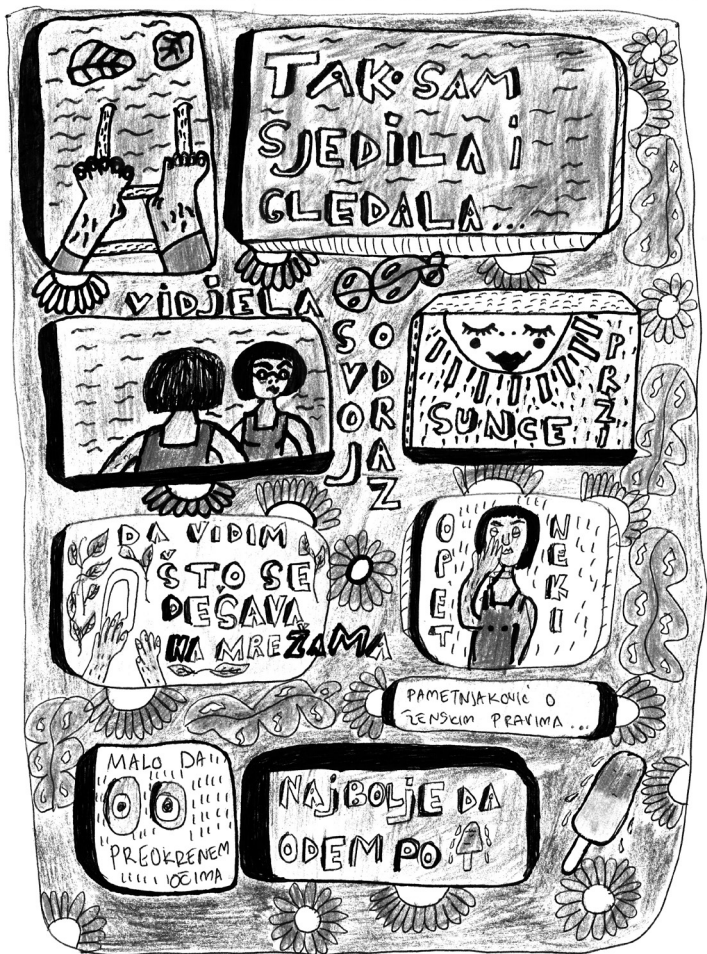 TAK SAM
SJEDILA I
GLEDALA...
VIDJELA
SVOJ
ODRAZ
SUNCE
PRŽI
DA VIDIM
ŠTO SE
DEŠAVA
NA MREŽAMA
OPET
NEKI
PAMETNJAKOVIĆ O
ŽENSKIM PRAVIMA...
MALO DA
PREOKRENEM
OČIMA
NAJBOLJE DA
ODEM PO